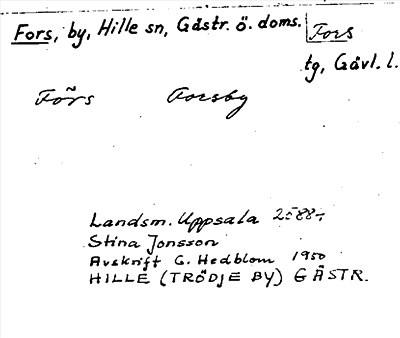 Fors, by, Hille sn, Gästr. ö. doms.
Fors
tg, Gävl. l.
Fo᷈rs Forsby
Landsm. Uppsala
Stina Jonsson
Avskrift G. Hedblom 1950
HILLE (TRÖDJE BY) GÄSTR.